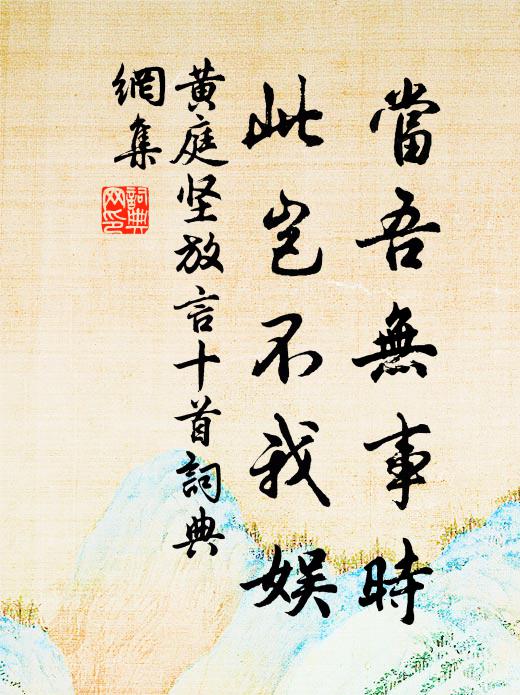 當吾無事時
此豈不我娛
黄庭坚放言十首詞典
網集
詞典
网印